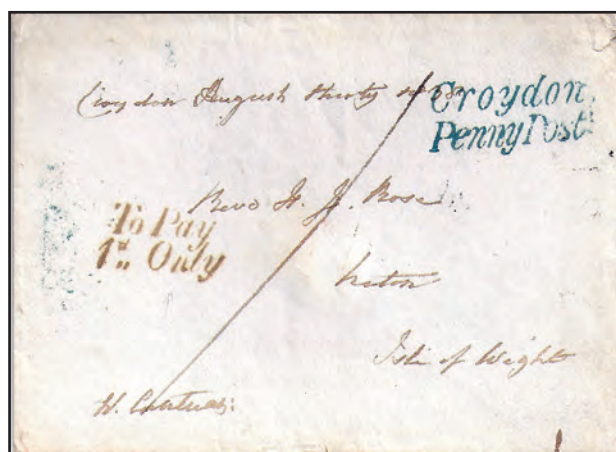 Croydon August thirty
Croydon
Penny Post
Revd H. J. Rose
To Pay
1d. Only
Isle of Wight